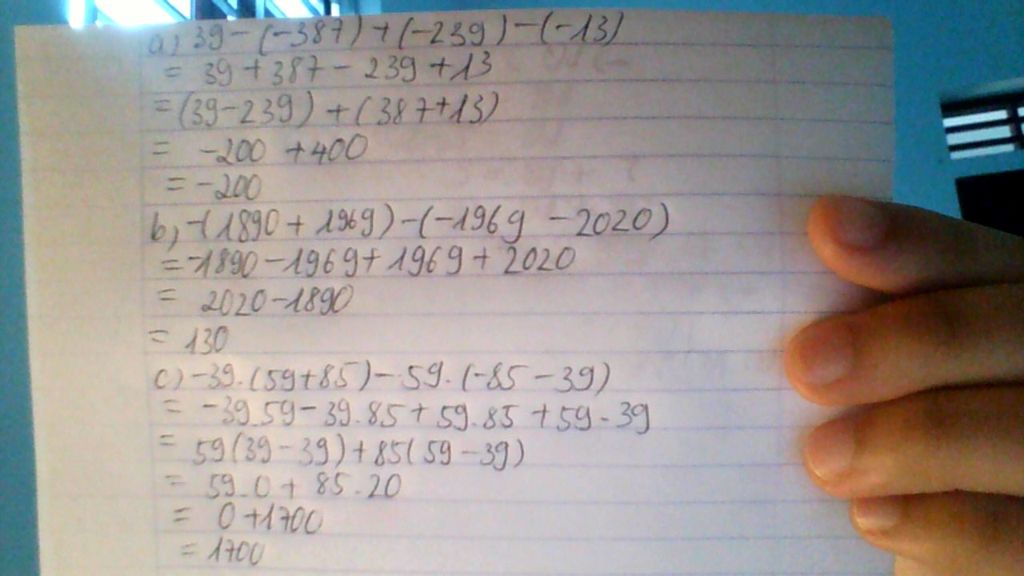 a) 39-(-387)+(-239)-(-13)
= 39+387-239+13
=(39-239)+(387+13)
= -200 +400
= -200
b) -(1890+1969)-(-1969 -2020)
=-1890-1969+1969+2020
= 2020-1890
= 130
c) -39.(59+85)-59.(-85-39)
= -39.59-39.85+59.85+59.39
= 59(39-39)+85(59-39)
= 59.0+85.20
= 0+1700
= 1700